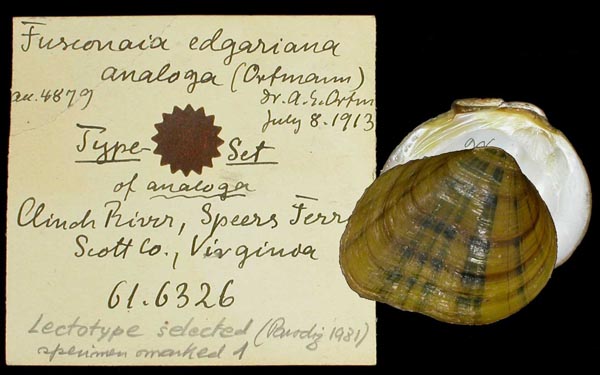 Fusconaia edgariana
analoga (Ortmann)
au. 4879
Dr. A. E. Ortm
July 8. 1913
Type Set
of analoga
Clinch River, Speers Ferr
Scott Co., Virginia
61.6326
Lectotype selected (Parodiz 1981)
specimen marked 1